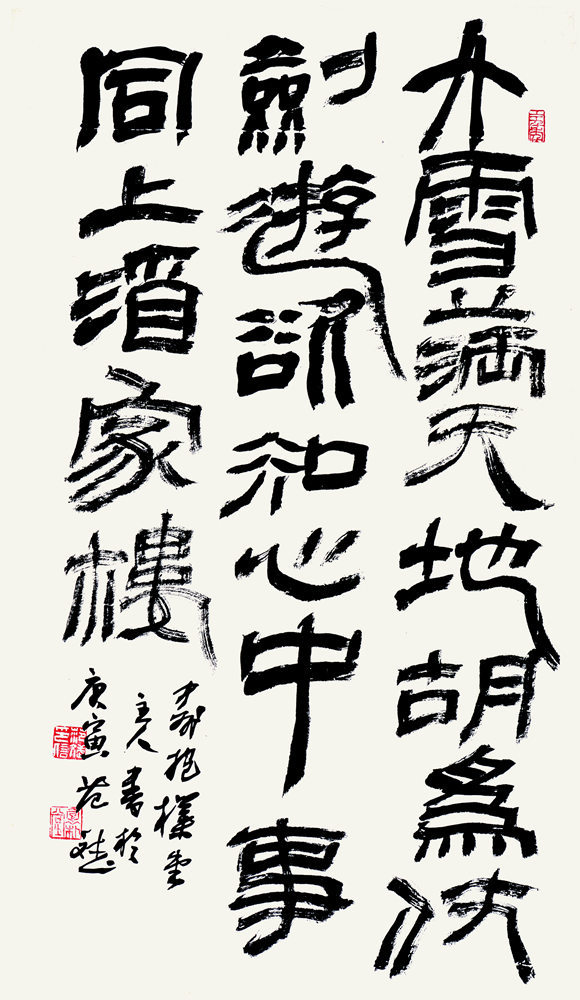 大雪滿天地胡為仗
劍遊欲知心中事
同上酒家樓
抱樸堂
主人書於
庚寅